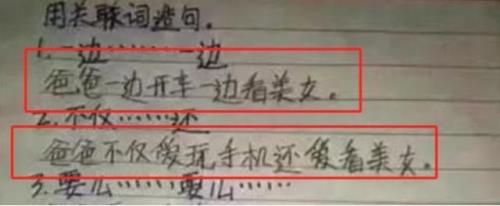 用关联词造句。
1.一边……一边
爸爸一边开车一边看美女。
2.不仅……还
爸爸不仅爱玩手机还爱看美女。
3.要么……要么……